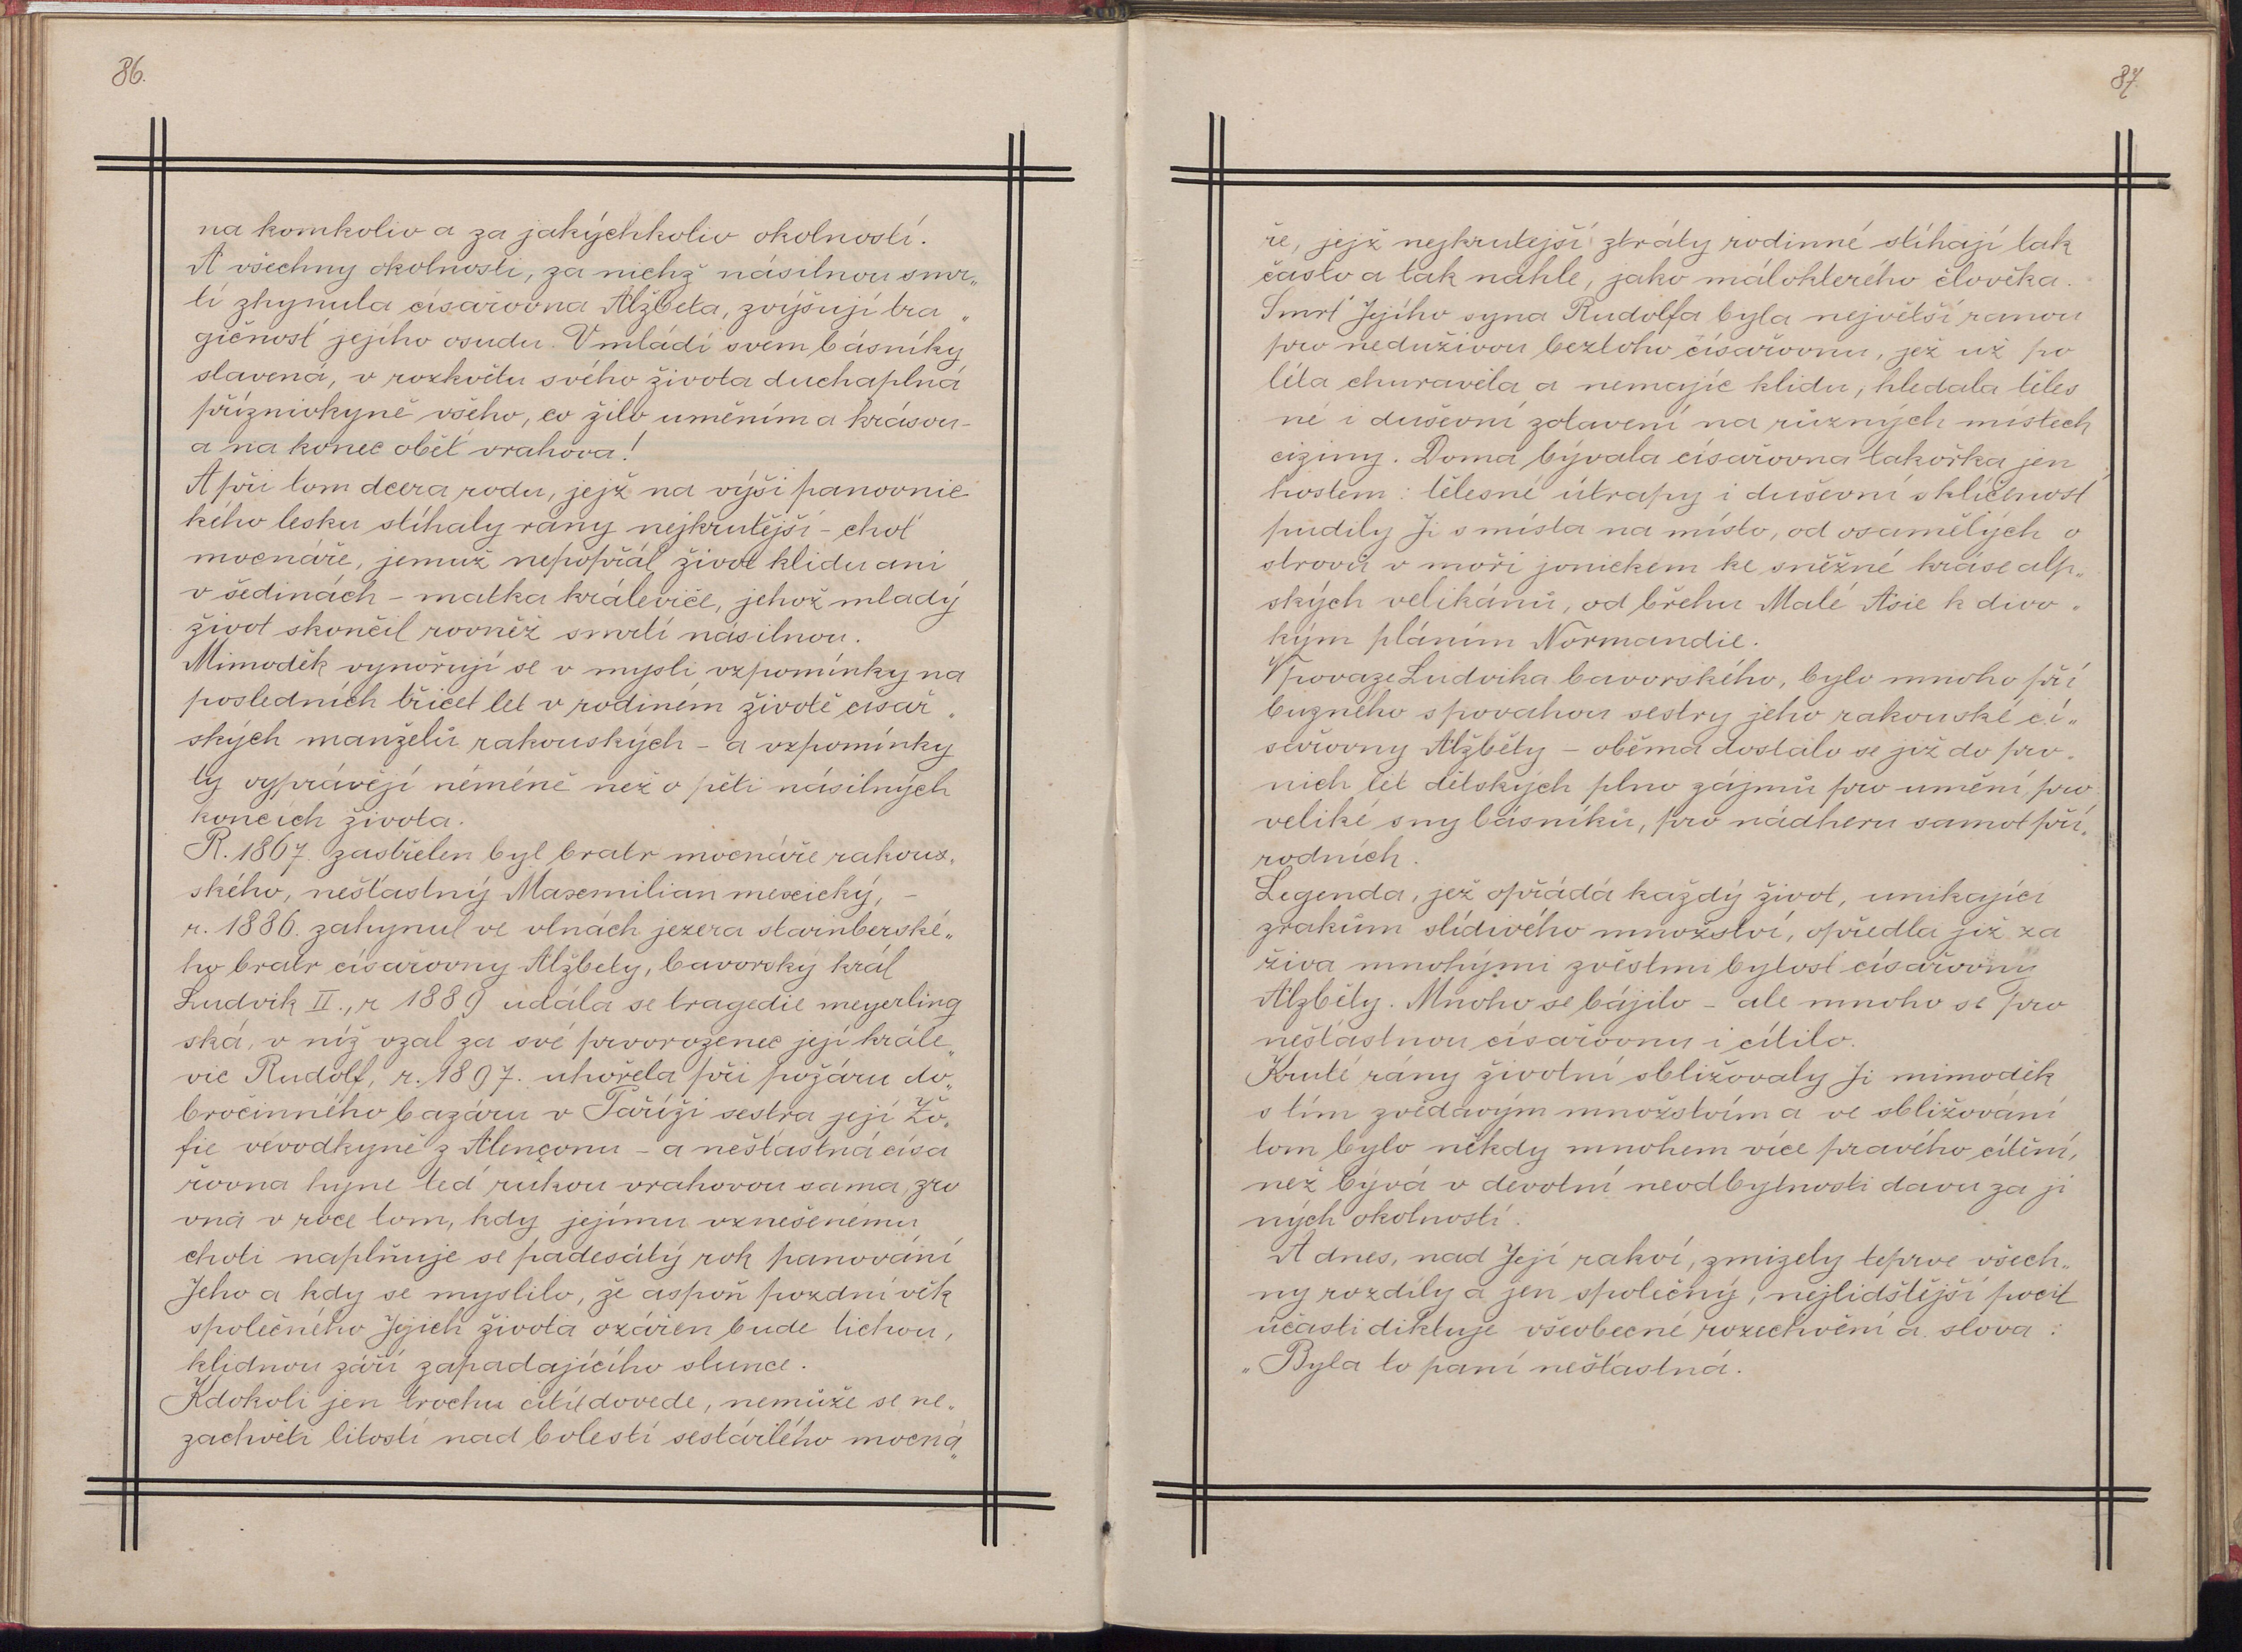 86.
na komkoliv a za jakýchkoliv okolností.
A všechny okolnosti, za nichž násilnou smr„
tí zhynula císařovna Alžběta, zvýšují tra„
gičnosť jejího osudu. V mládí svém básníky
slavená, v rozkvětu svého života duchaplná
příznivkyně všeho, co žilo uměním a krásou –
a na konec oběť vrahova!
A při tom dcera rodu, jejž na výši panovnic
kého lesku stíhaly rány nejkrutější – choť
mocnáře, jemuž nepopřál život klidu ani
v šedinách – matka králeviče, jehož mladý
život skončil rovněž smrtí násilnou.
Mimoděk vynořují se v mysli vzpomínky na
posledních třicet let v rodiném životě císař„
ských manželů rakouských – a vzpomínky
ty vyprávějí néméně než o pěti násilných
koncích života.
R. 1867. zastřelen byl bratr mocnáře rakous„
ského, nešťastný Maxemilian mexický, –
r. 1886. zahynul ve vlnách jezera starnberské„
ho bratr císařovny Alžbety, bavorský král
Ludvik II., r 1889 udála se tragedie meyerling
ská, v níž vzal za své prvorozenec její krále„
vic Rudolf, r. 1897. uhořela při požáru do„
bročinného bazáru v Paříži sestra její Žo„
fie vévodkyně z Alençonu – a nešťastná císa
řovna hyne teď rukou vrahovou sama, zro
vna v roce tom, kdy jejímu vznešenému
choti naplňuje se padesátý rok panování
Jeho a kdy se myslilo, že aspoň pozdní věk
společného Jejich života ozářen bude tichou,
klidnou září zapadajícího slunce.
Kdokoli jen trochu cítit dovede, nemůže se ne„
zachvěti lítostí nad bolestí sestárlého mocná„
87.
ře, jejž nejkrutější ztráty rodinné stíhají tak
často a tak náhle, jako málokterého člověka.
Smrť Jejího syna Rudolfa byla největší ranou
pro neduživou beztoho císařovnu, jež už po
léta churavěla a nemajíc klidu, hledala těles
né i duševní zotavení na různých místech
ciziny. Doma bývala císařovna takořka jen
hostem: tělesné útrapy i duševní sklíčenosť
pudily Ji s místa na místo, od osamělých o
strovů v moři jonickém ke sněžné kráse alp„
ských velikánů, od břehu Malé Asie k divo„
kým pláním Normandie.
V povaze Ludvika bavorského, bylo mnoho pří
buzného s povahou sestry jeho rakouské cí„
sařovny Alžběty – oběma dostalo se již do prv„
ních let dětských plno zájmů pro umění, pro
veliké sny básníků, pro nádheru samot pří„
rodních.
Legenda, jež opřádá každý život, unikající
zrakům slídivého množství, opředla již za
živa mnohými zvěstmi bytosť císařovny
Alžběty. Mnoho se bájilo – ale mnoho se pro
nešťastnou císařovnu i cítilo.
Kruté rány životní sbližovaly Ji mimoděk
s tím zvědavým množstvím a ve sbližování
tom bylo někdy mnohem více pravého cítění,
než bývá v devotní neodbytnosti davu za ji
ných okolností.
A dnes, nad Její rakví, zmizely teprve všech„
ny rozdíly a jen společný, nejlidštější pocit
účasti diktuje všeobecné rozechvění a slova:
„Byla to paní nešťastná.